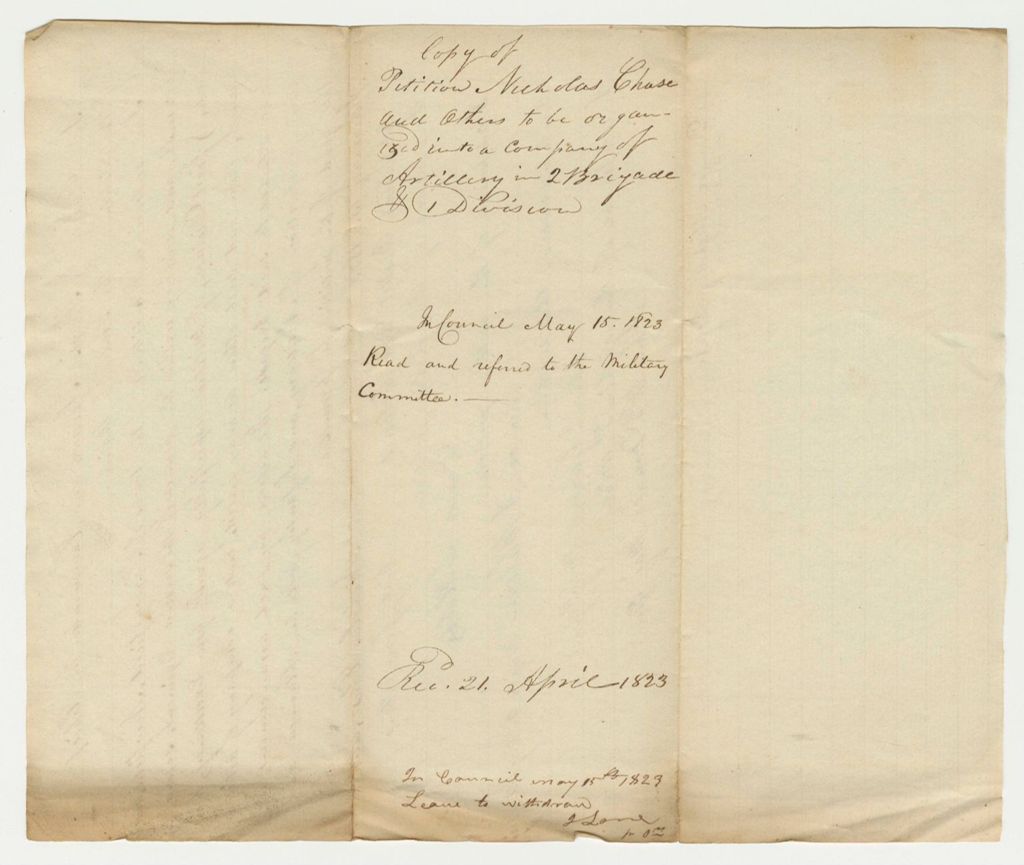 Copy of
Petition Nicholas Chase
and Others to be organ-
ized into a Company of
Artillery in 2 Brigade
& 1 Division
In Council May 15. 1823
Read and referred to the Military
Committee. —
Rec. 21. April 1823
In Council may 15th 1823
Leave to withdraw